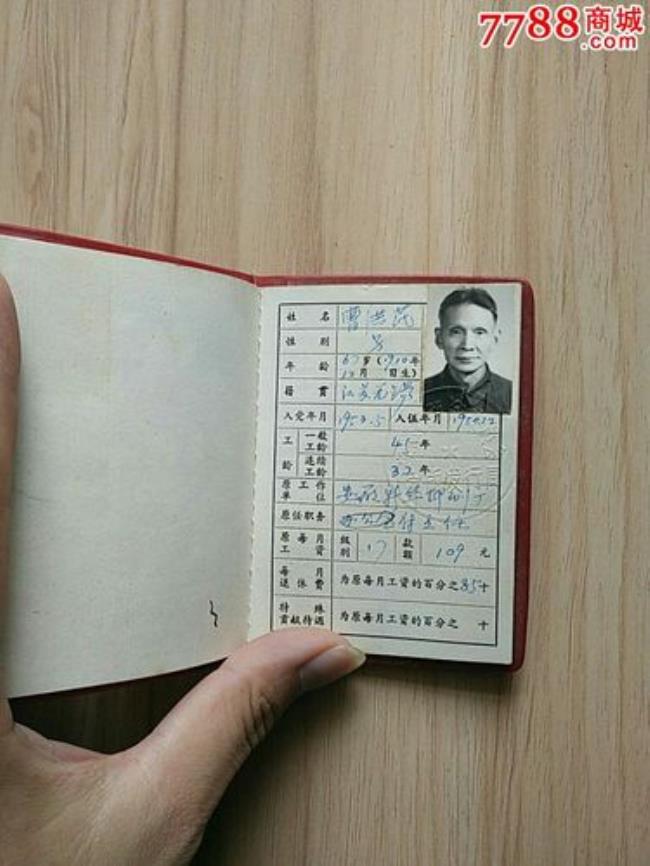 7788商城
.com
姓名 曹洪
性别 男
年龄 67岁(1910年
12月 日生)
籍贯 江苏无锡
入党年月 195 .5 入伍年月
工龄 一般工龄 45年
连续工龄 32年
原工作单位
原任职务 付主任
原每月工资 级别 17 款额 109元
每月退休费 为原每月工资的百分之85十
特殊贡献待遇 为原每月工资的百分之 十